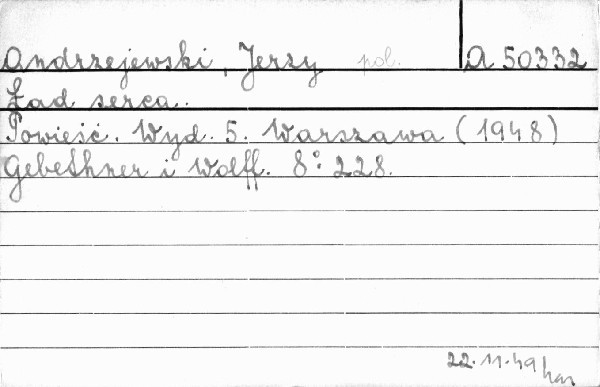 Andrzejewski, Jerzy pol. A 50332
Ład serca.
Powieść. Wyd. 5. Warszawa (1948)
Gebethner i Wolff. 8° 228.
22.11.49